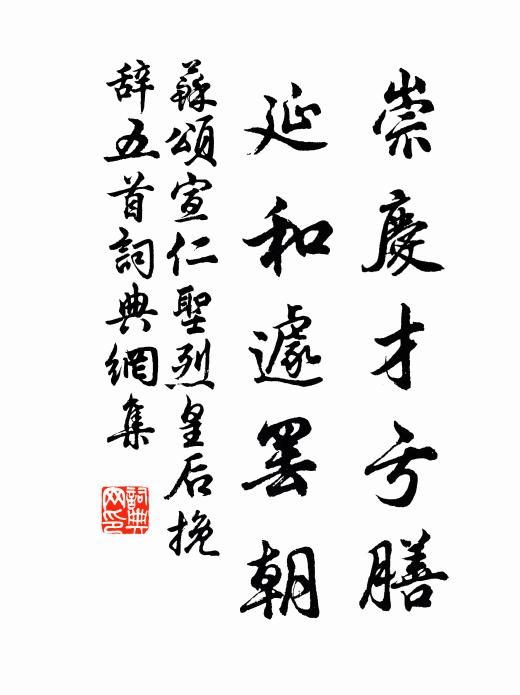 崇慶才亏膳
延和遽罢朝
蘇頌宣仁聖烈皇后挽
辞五首詞典網集
詞典
网印